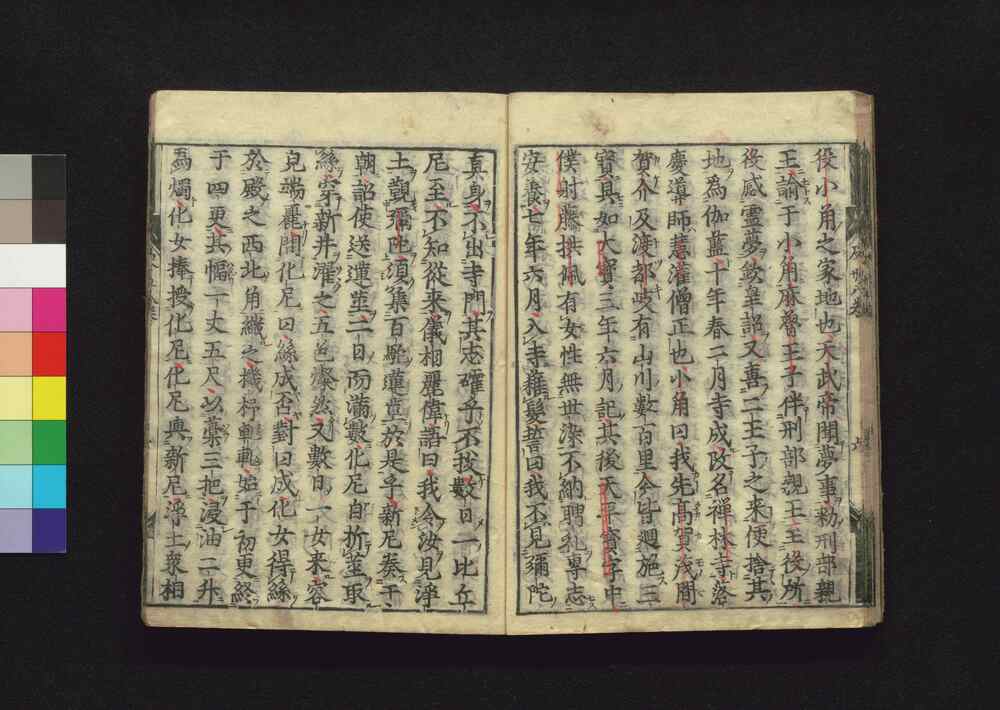 役小角之家地也天武帝聞夢事勅刑部親
王諭于小角麻呂王子伴刑部親王王役所
役感靈夢欽皇詔又喜二王子之來便捨其
地為伽藍十年春二月寺成改名禪林寺落
慶導師慧灌僧正也小角曰我先髙賀茂間
賀介及渡都岐有山川數百里今皆廻施三
寶具如大寶三年六月記其後天平寳字中
僕射藤拱佩有女性無世染不納聘礼専志
安養七年六月入寺薙髮誓曰我不見彌陀
真身不出寺門其志確乎不拔數日一比丘
尼至不知從來儀相麗偉語曰我令汝見淨
土觀彌陀須集百駄蓮莖於是乎新尼奏于
朝詔使送蓮莖二日而滿數化尼自折莖取
絲穿新井濯之五色燦然又數日一女來容
皃端麗問化尼曰絲成否對曰成化女得絲
於殿之西北角織之機杼軋軋始于初更終
于四更其幅一丈五尺以藁三把浸油二升
為燭化女捧授化尼化尼與新尼淨土衆相